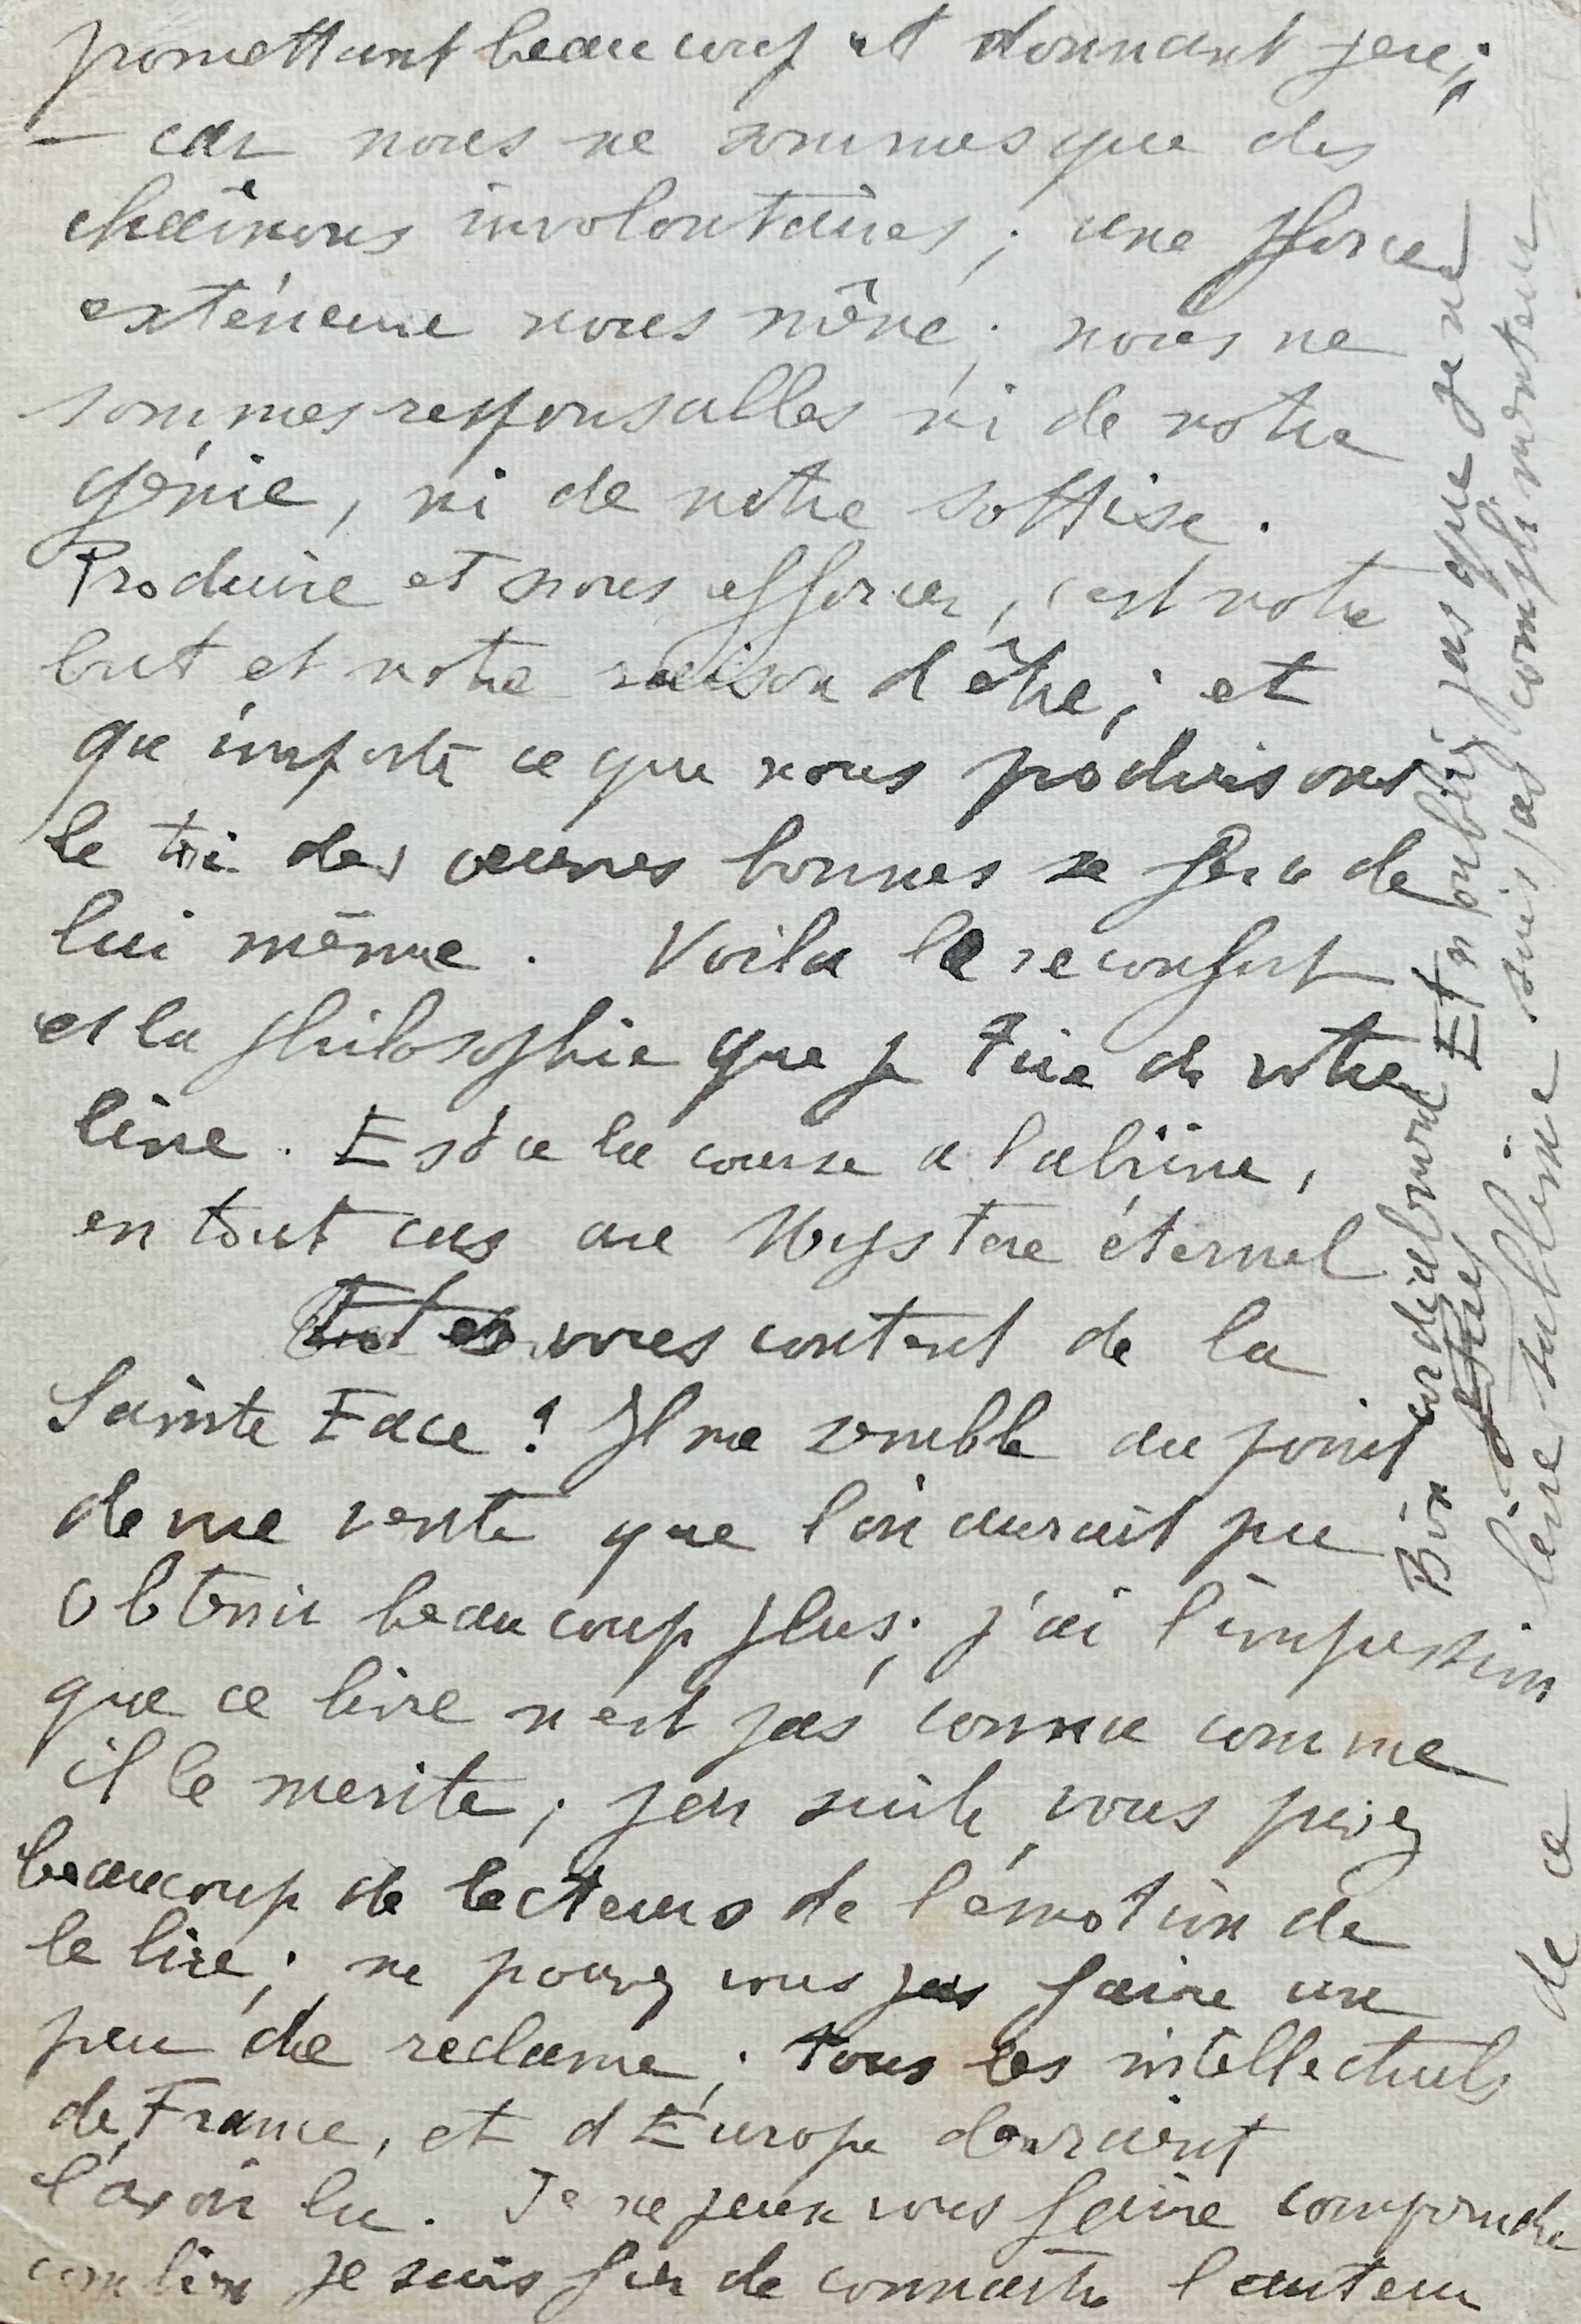 promettant beaucoup et donnant peu;
– car nous ne sommes que des
chaînons involontaires; une force
extérieure nous mène; nous ne
sommes responsables ni de notre
génie, ni de notre sottise.
Produire et nous efforcer, c'est notre
but et notre raison d'être; et
qu'importe ce que nous produisons
le tri des œuvres bonnes se fera de
lui même. Voila le reconfort
et la philosophie que je tire de votre
livre. Est ce la course a l'abîme,
en tout cas au Mystere éternel
vous content de la
Sainte Face! Il me semble au point
de vue vente que l'on aurait pu
obtenir beaucoup plus; j'ai l'impression
que ce livre n'est pas connu comme
il le merite; par suite vous privez
beaucoup de lecteurs de l'émotion de
le lire; ne pouvez vous pas faire un
peu de reclame; tous les intellectuels
de France, et d'Europe devraient
l'avoir lu. Je ne peux vous faire comprendre
combien je suis fier de connaitre l'auteur
de ce livre sublime
Bien cordialement Et n'oubliez pas que je ne
suis pas complimenteur